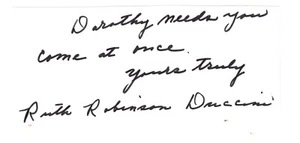 Dorothy needs you
come at once.
yours truly
Ruth Robinson Duccini